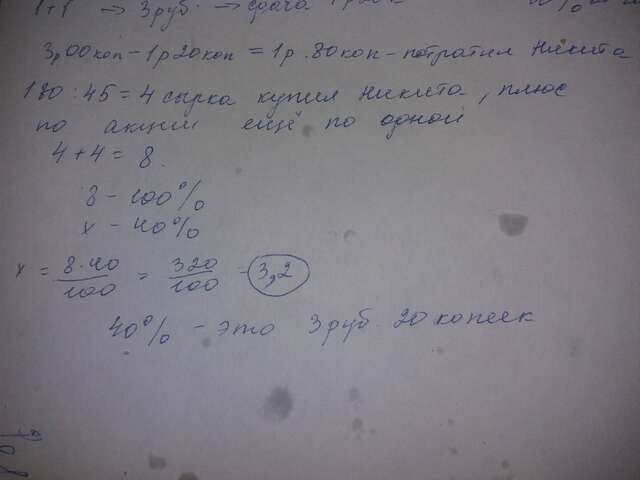 1+1 → 3 руб. → сдача
3,00 коп - 1р20коп = 1р.80коп - потратил Никита
180 : 45 = 4 сырка купил Никита, плюс
по акции ещё по одной
4 + 4 = 8.
8 - 100%
х - 40%
х = 8·40/100 = 320/100 = 3,2
40% - это 3 руб. 20 копеек